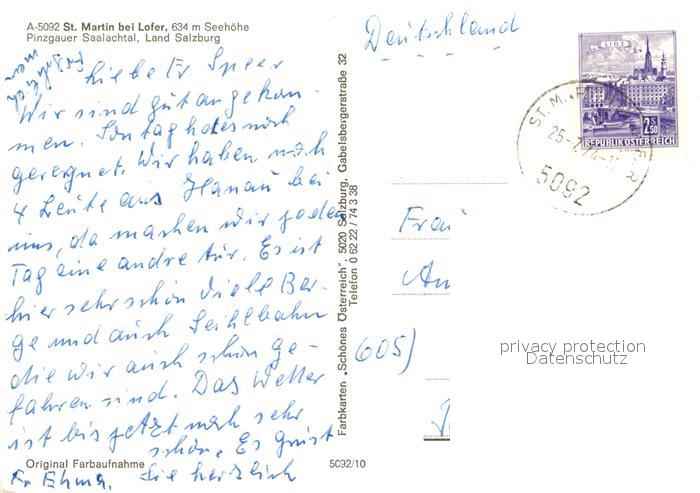 A-5092 St. Martin bei Lofer, 634 m Seehöhe
Pinzgauer Saalachtal, Land Salzburg
Liebe Fr Speer
Wir sind gut angekom-
men. Sontag hates noch
geregnet. Wir haben noch
4 Leute aus Hanau bei
uns, da machen wir jeden
Tag eine andre Tur. Es ist
hier sehr schön Viele Ber-
ge und auch Seihlbahn
die wir auch schon ge-
fahren sind. Das Wetter
ist bis jetzt noch sehr
schön. Es grüst
Sie herzlich
Fr Ehma.
Original Farbaufnahme
5092/10
Farbkarten „Schönes Österreich", 5020 Salzburg, Gabelsbergerstraße 32
Telefon 0 62 22 / 74 3 38
Deutschland
LINZ
2.50
REPUBLIK ÖSTERREICH
ST. M.
5092
Frau
605)
privacy protection
Datenschutz